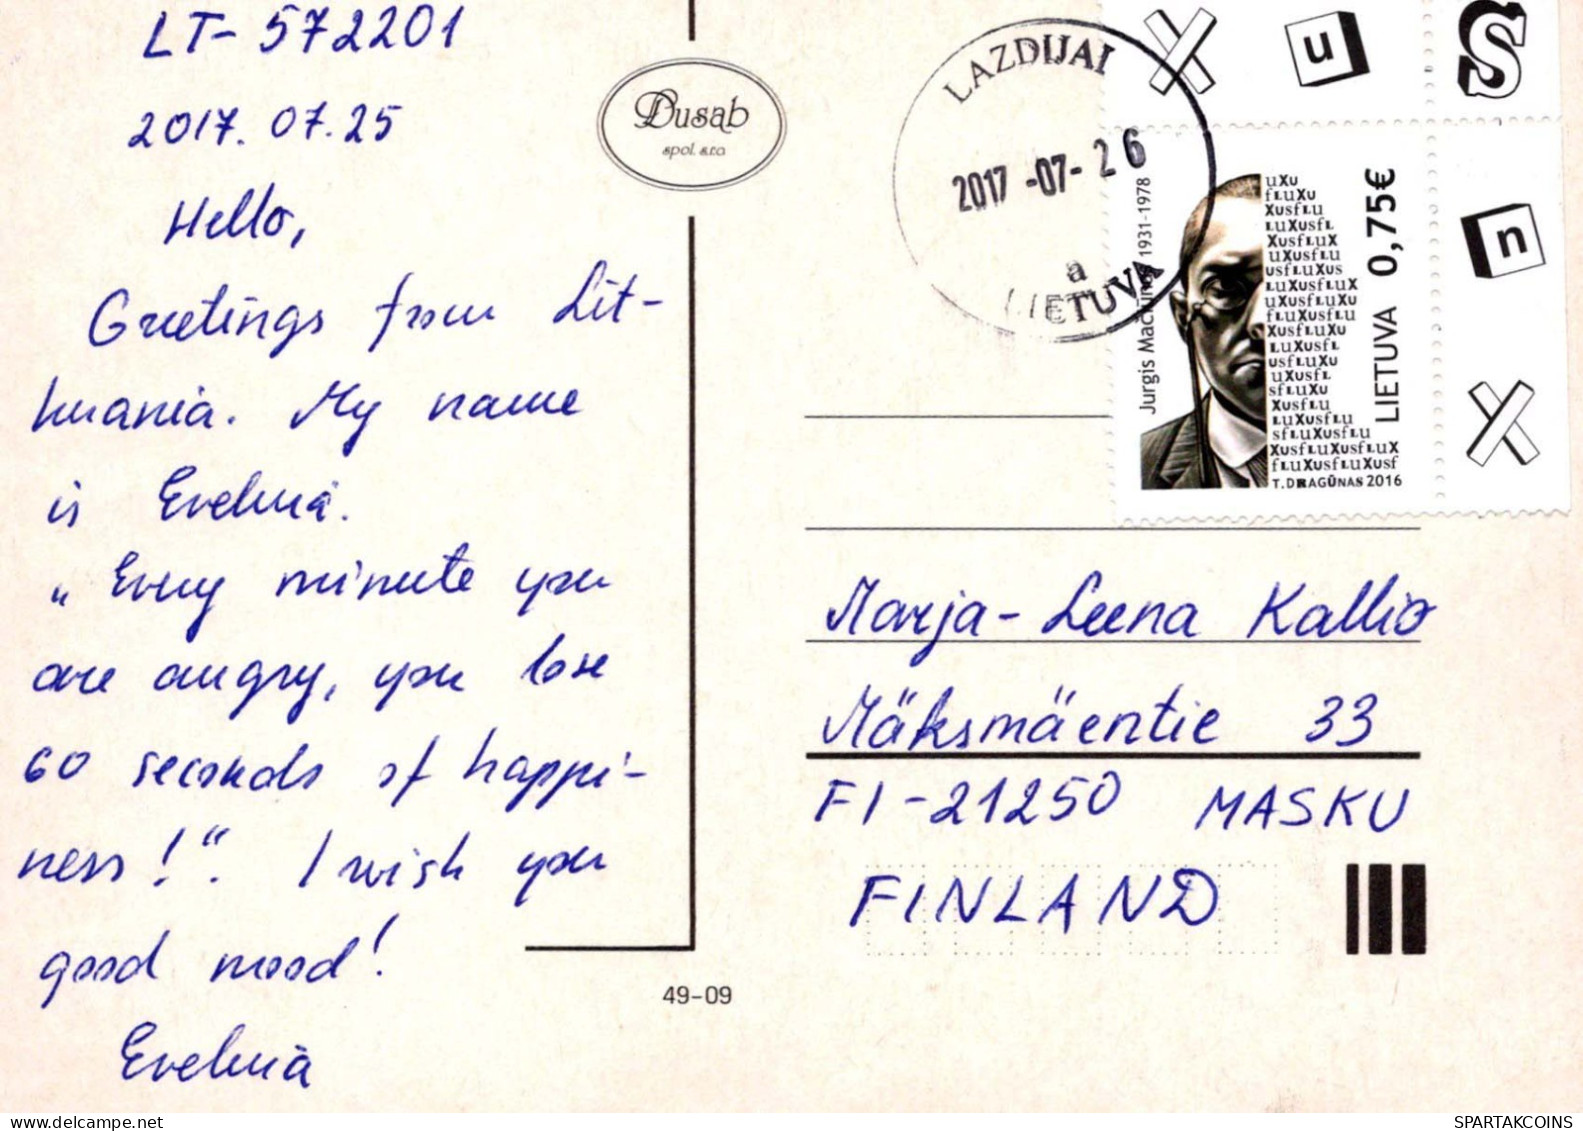 LT-572201
2017.07.25
Hello,
Greetings from Lit-
huania. My name
is Evelina.
„Every minute you
are angry, you lose
60 seconds of happi-
ness!“. I wish you
good mood!
Evelina
Dusab
spol. s.r.o.
49-09
LAZDIJAI
2017-07-26
a
LIETUVA
X u S
n
X
Jurgis Mačiūnas 1931-1978
LIETUVA 0,75€
uXu
fLuXu
XusfLu
LuXusfL
XusfLuX
uXusfLu
usfLuXus
LuXusfLuX
uXusfLuXu
fLuXusfLu
XusfLuXu
LuXusfL
usfLuXu
uXusfL
sfLuXu
XusfLu
LuXusfLu
sfLuXusfLu
XusfLuXusfLuX
fLuXusfLuXusf
T.DRAGŪNAS 2016
Marja-Leena Kallio
Mäksmäentie 33
FI-21250 MASKU
FINLAND
SPARTAKCOINS
www.delcampe.net